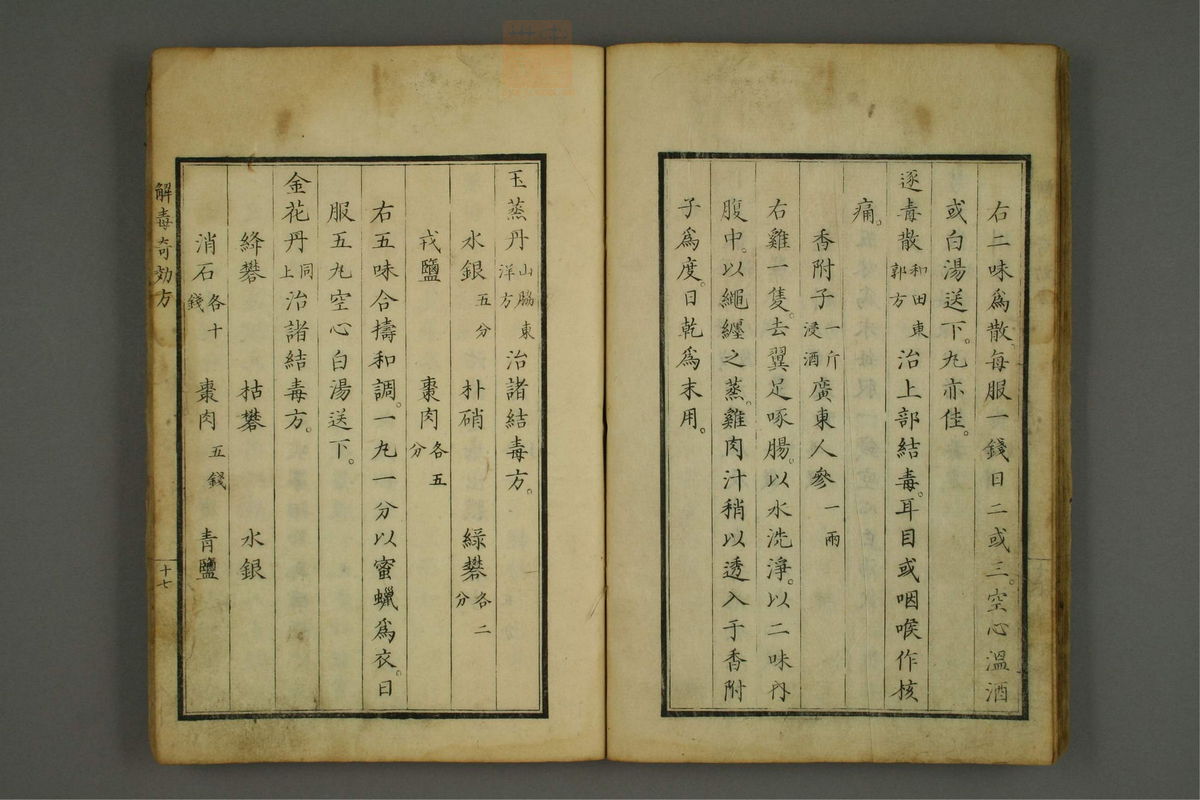 右二味爲散。每服一錢日二或三。空心溫酒
或白湯送下。丸亦佳。
逐毒散和田東郭方治上部結毒。耳目或咽喉作核
痛。
香附子一斤浸酒廣東人參一兩
右雞一隻。去翼足啄腸。以水洗淨。以二味內
腹中。以繩纒之蒸。雞肉汁稍以透入于香附
子爲度。日乾爲末用。
玉蒸丹山脇東洋方治諸結毒方。
水銀五分 朴硝 綠礬各二分
戎鹽 棗肉各五分
右五味合擣和調。一丸一分以蜜蠟爲衣。日
服五丸空心白湯送下。
金花丹同上治諸結毒方。
絳礬 枯礬 水銀
消石各十錢 棗肉五錢 青鹽
解毒奇効方
十七